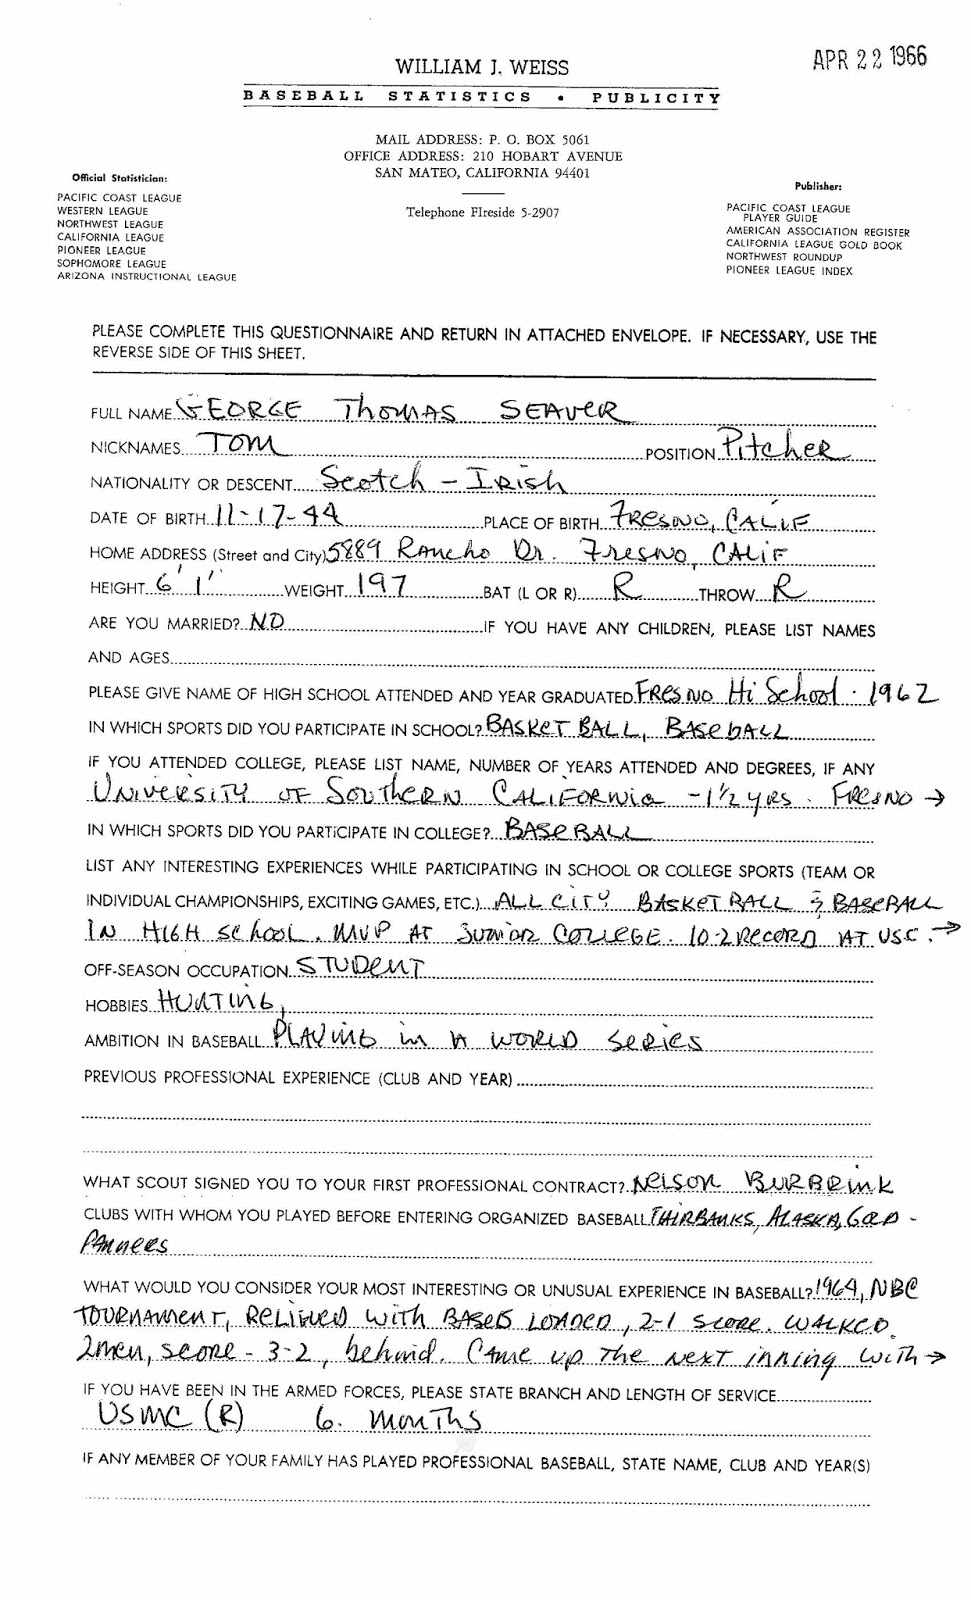 APR 22 1966
WILLIAM J. WEISS
BASEBALL STATISTICS • PUBLICITY
MAIL ADDRESS: P. O. BOX 5061
OFFICE ADDRESS: 210 HOBART AVENUE
SAN MATEO, CALIFORNIA 94401
Telephone FIreside 5-2907
Official Statistician:
PACIFIC COAST LEAGUE
WESTERN LEAGUE
NORTHWEST LEAGUE
CALIFORNIA LEAGUE
PIONEER LEAGUE
SOPHOMORE LEAGUE
ARIZONA INSTRUCTIONAL LEAGUE
Publisher:
PACIFIC COAST LEAGUE
PLAYER GUIDE
AMERICAN ASSOCIATION REGISTER
CALIFORNIA LEAGUE GOLD BOOK
NORTHWEST ROUNDUP
PIONEER LEAGUE INDEX
PLEASE COMPLETE THIS QUESTIONNAIRE AND RETURN IN ATTACHED ENVELOPE. IF NECESSARY, USE THE
REVERSE SIDE OF THIS SHEET.
FULL NAME GEORGE Thomas SEAVER
NICKNAMES TOM POSITION Pitcher
NATIONALITY OR DESCENT Scotch - Irish
DATE OF BIRTH 11-17-44 PLACE OF BIRTH FRESNO, CALIF
HOME ADDRESS (Street and City) 5889 Rancho Dr. Fresno, CALIF
HEIGHT 6' 1" WEIGHT 197 BAT (L OR R) R THROW R
ARE YOU MARRIED? NO IF YOU HAVE ANY CHILDREN, PLEASE LIST NAMES
AND AGES
PLEASE GIVE NAME OF HIGH SCHOOL ATTENDED AND YEAR GRADUATED FRESNO Hi School - 1962
IN WHICH SPORTS DID YOU PARTICIPATE IN SCHOOL? BASKET BALL, BASEbALL
IF YOU ATTENDED COLLEGE, PLEASE LIST NAME, NUMBER OF YEARS ATTENDED AND DEGREES, IF ANY
UNIVERSITY OF SOUTHERN CALIFORNIA - 1 1/2 yrs. FRESNO →
IN WHICH SPORTS DID YOU PARTICIPATE IN COLLEGE? BASEBALL
LIST ANY INTERESTING EXPERIENCES WHILE PARTICIPATING IN SCHOOL OR COLLEGE SPORTS (TEAM OR
INDIVIDUAL CHAMPIONSHIPS, EXCITING GAMES, ETC.) ALL CITY BASKETBALL & BASEBALL
IN HIGH SCHOOL. MVP AT JUNIOR COLLEGE. 10-2 RECORD AT USC. →
OFF-SEASON OCCUPATION STUDENT
HOBBIES HUNTING,
AMBITION IN BASEBALL PLAYING in A WORLD SERIES
PREVIOUS PROFESSIONAL EXPERIENCE (CLUB AND YEAR)
WHAT SCOUT SIGNED YOU TO YOUR FIRST PROFESSIONAL CONTRACT? Nelson BURBRINK
CLUBS WITH WHOM YOU PLAYED BEFORE ENTERING ORGANIZED BASEBALL FAIRBANKS, ALASKA, GOLD -
PANNERS
WHAT WOULD YOU CONSIDER YOUR MOST INTERESTING OR UNUSUAL EXPERIENCE IN BASEBALL? 1964, NBC
TOURNAMENT, RELIEVED with BASES LOADED, 2-1 SCORE. WALKED
2 men, score - 3-2, behind. CAME UP THE NEXT INNING WITH →
IF YOU HAVE BEEN IN THE ARMED FORCES, PLEASE STATE BRANCH AND LENGTH OF SERVICE
USMC (R) 6. MONTHS
IF ANY MEMBER OF YOUR FAMILY HAS PLAYED PROFESSIONAL BASEBALL, STATE NAME, CLUB AND YEAR(S)